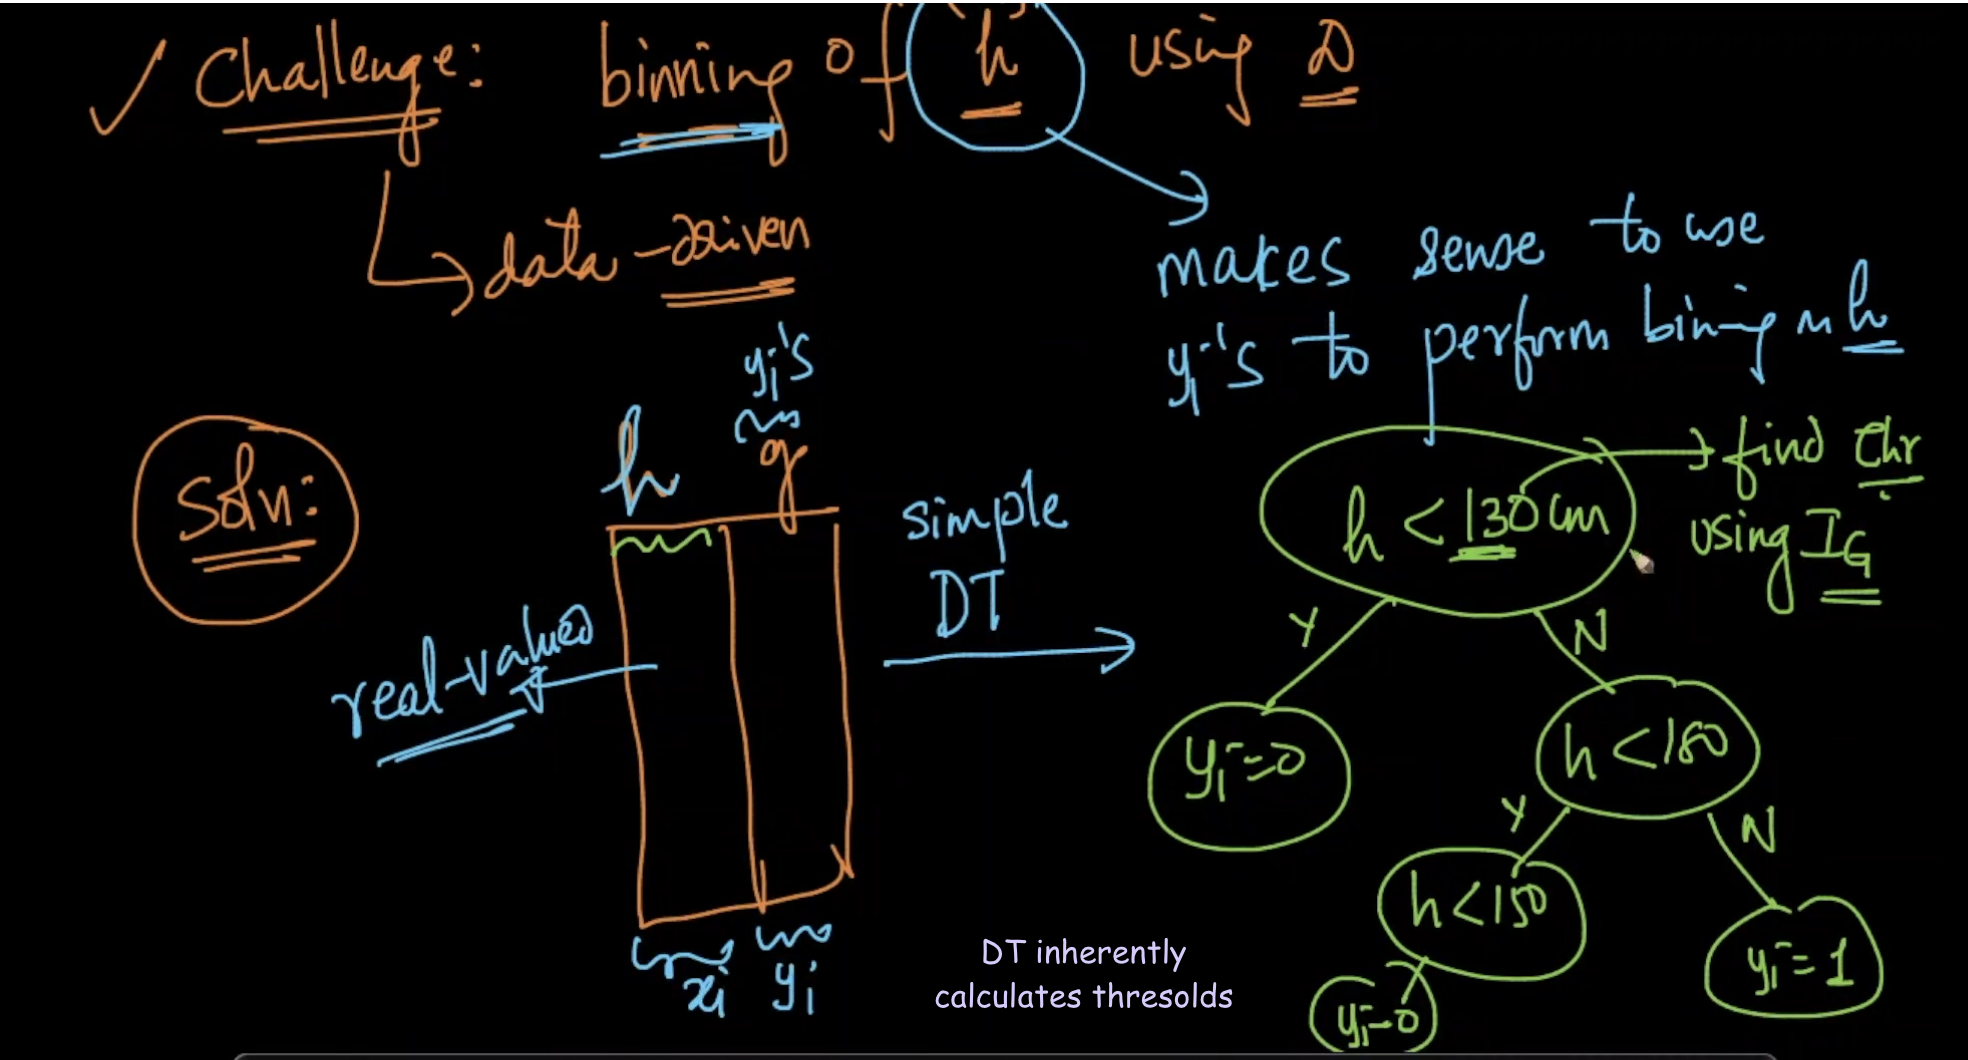 ✓ Challenge: binning of h using D
data-driven
makes sense to use
yi's to perform bining on h
yi's
Soln:
h g
simple
DT
real-values
xi yi
h < 130cm
find thr
using IG
Y N
yi=0
h < 180
Y N
h < 150
yi=1
yi=0
DT inherently
calculates thresolds